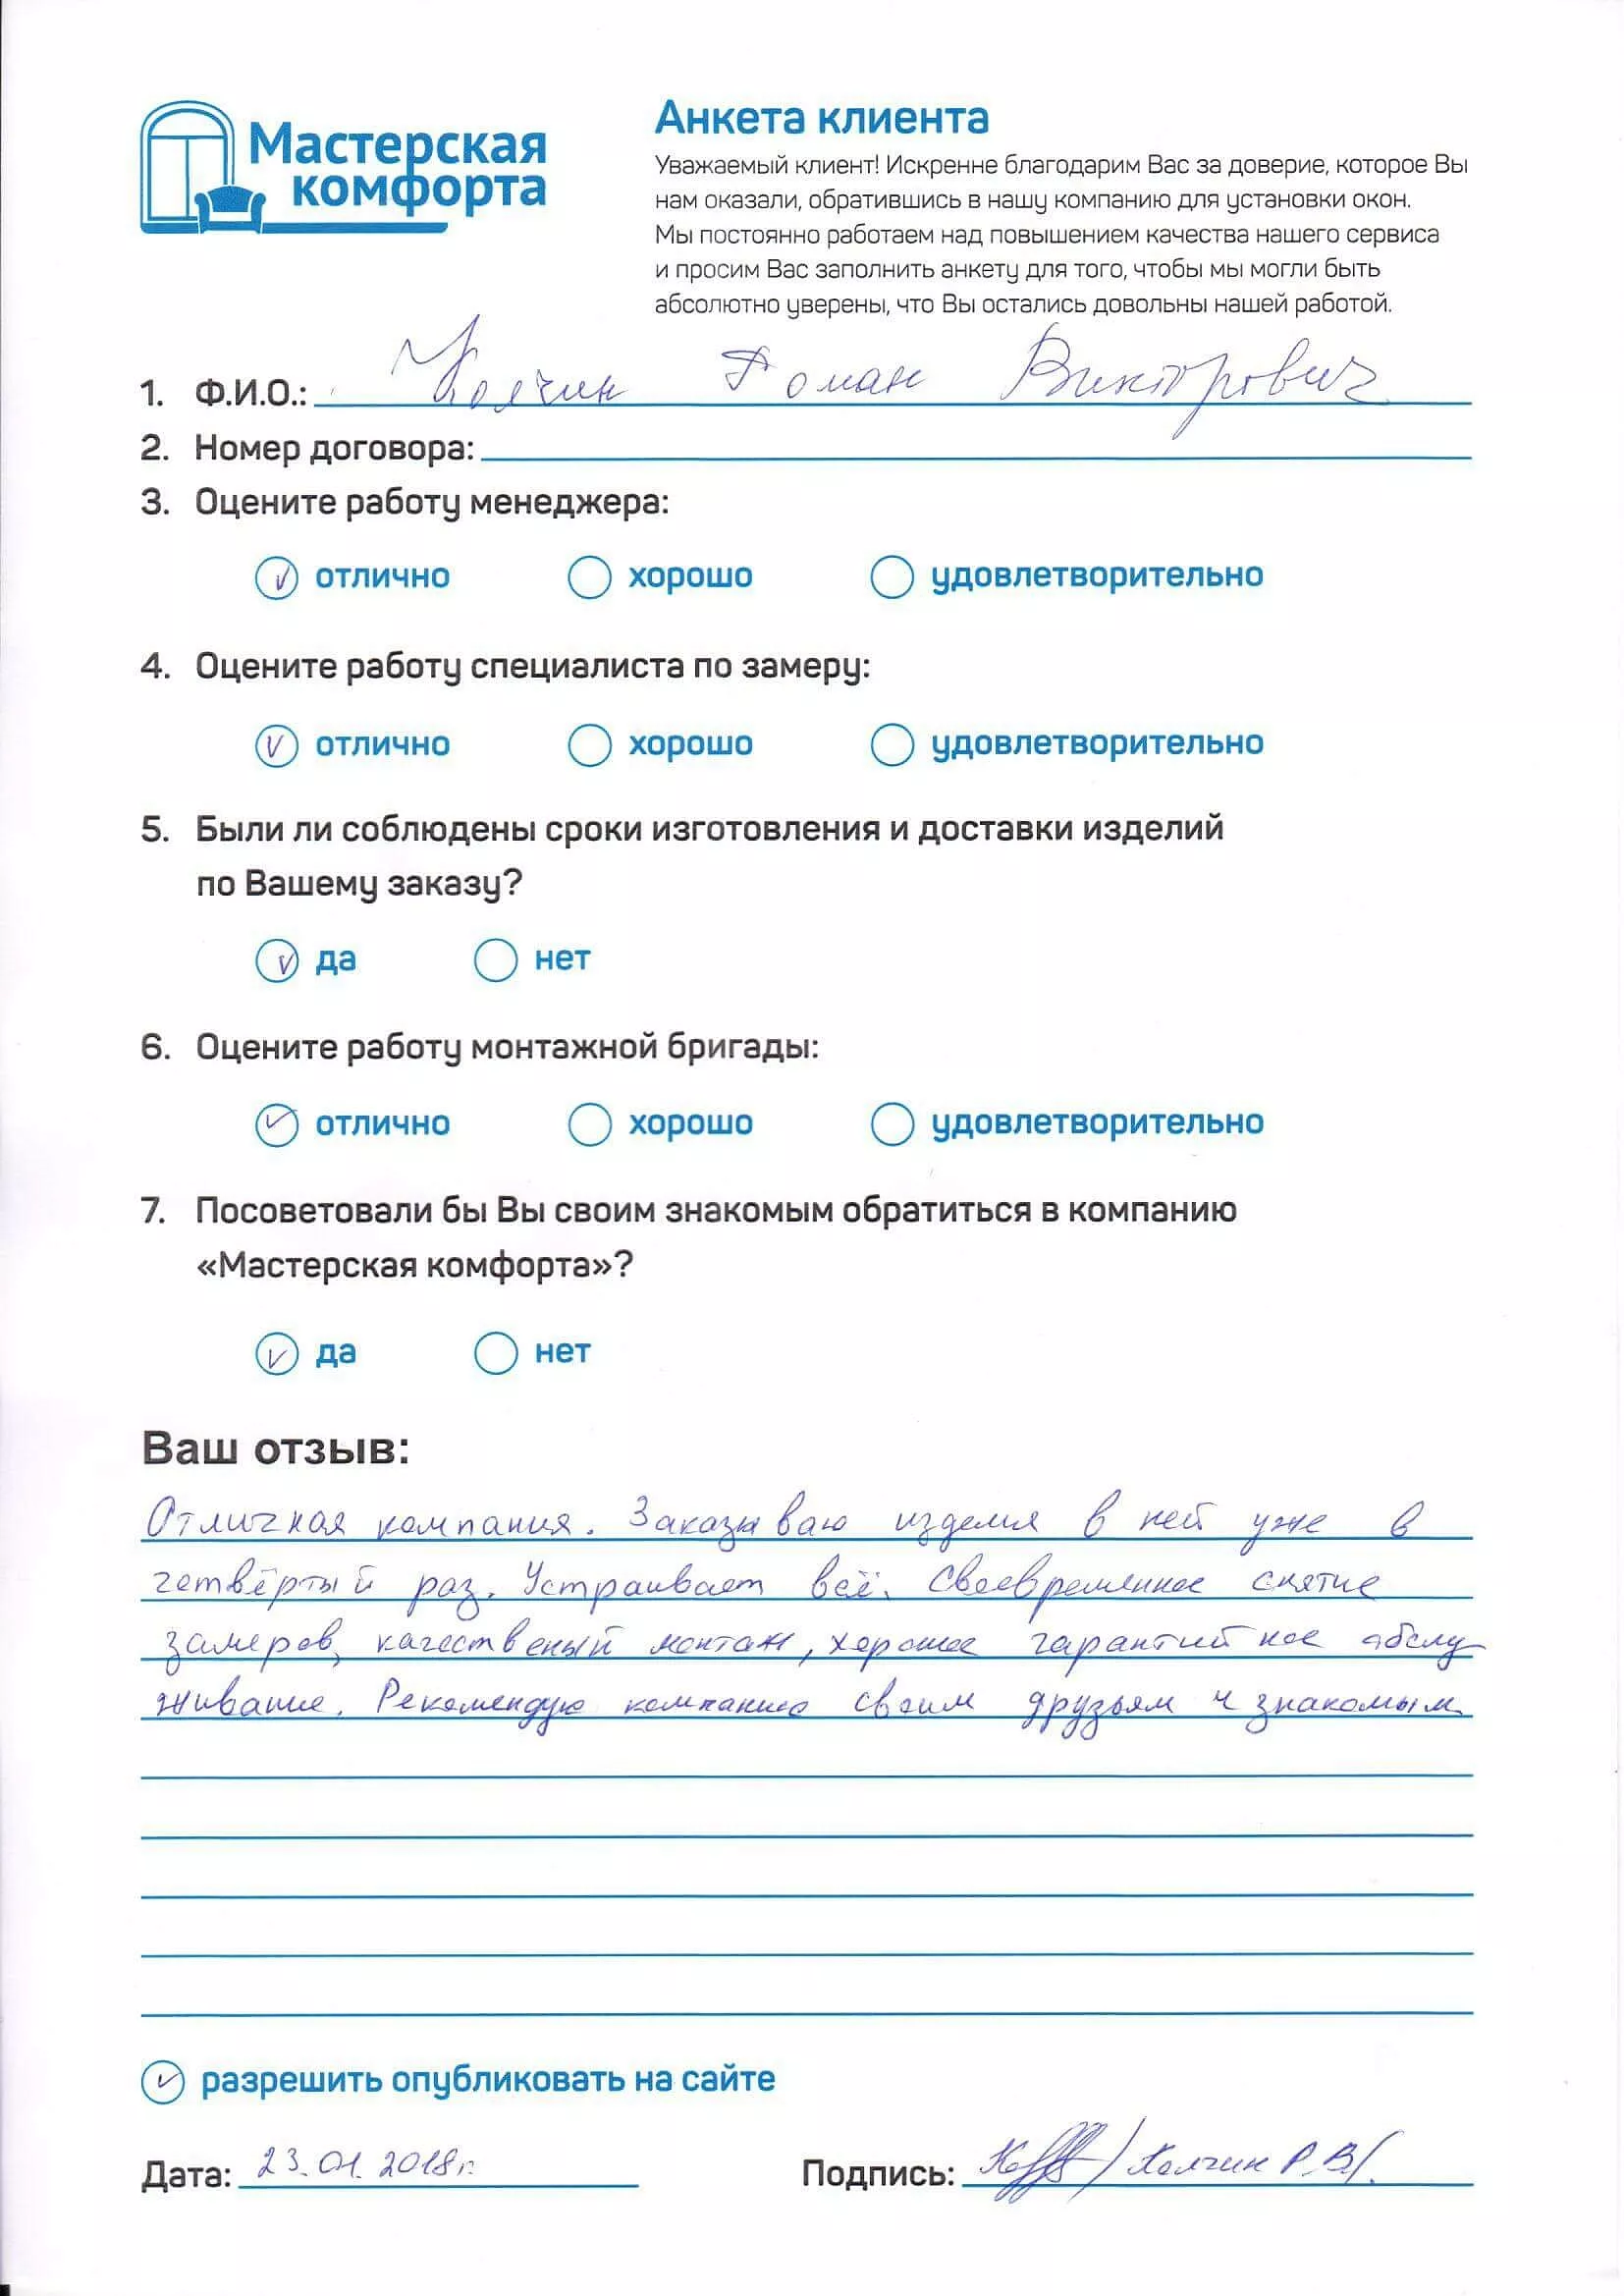 Мастерская
комфорта
Анкета клиента
Уважаемый клиент! Искренне благодарим Вас за доверие, которое Вы
нам оказали, обратившись в нашу компанию для установки окон.
Мы постоянно работаем над повышением качества нашего сервиса
и просим Вас заполнить анкету для того, чтобы мы могли быть
абсолютно уверены, что Вы остались довольны нашей работой.
1. Ф.И.О.: Колчин Роман Викторович
2. Номер договора:
3. Оцените работу менеджера:
отлично хорошо удовлетворительно
4. Оцените работу специалиста по замеру:
отлично хорошо удовлетворительно
5. Были ли соблюдены сроки изготовления и доставки изделий
по Вашему заказу?
да нет
6. Оцените работу монтажной бригады:
отлично хорошо удовлетворительно
7. Посоветовали бы Вы своим знакомым обратиться в компанию
«Мастерская комфорта»?
да нет
Ваш отзыв:
Отличная компания. Заказываю изделия в ней уже в
четвёртый раз. Устраивает всё. Своевременное снятие
замеров, качественый монтаж, хорошее гарантийное обслу
живание. Рекомендую компанию своим друзьям и знакомым.
разрешить опубликовать на сайте
Дата: 23.01.2018г. Подпись: / Колчин Р.В/.